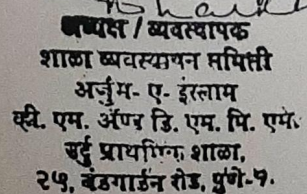 अध्यक्ष / व्यवस्थापक
शाळा व्यवस्थापन समिती
अर्जुम- ए- इस्लाम
व्ही. एम. ॲण्ड डि. एम. पि. एमे.
उर्दु प्राथमिक शाळा,
२५, बंडगार्डन रोड, पुणे-१.